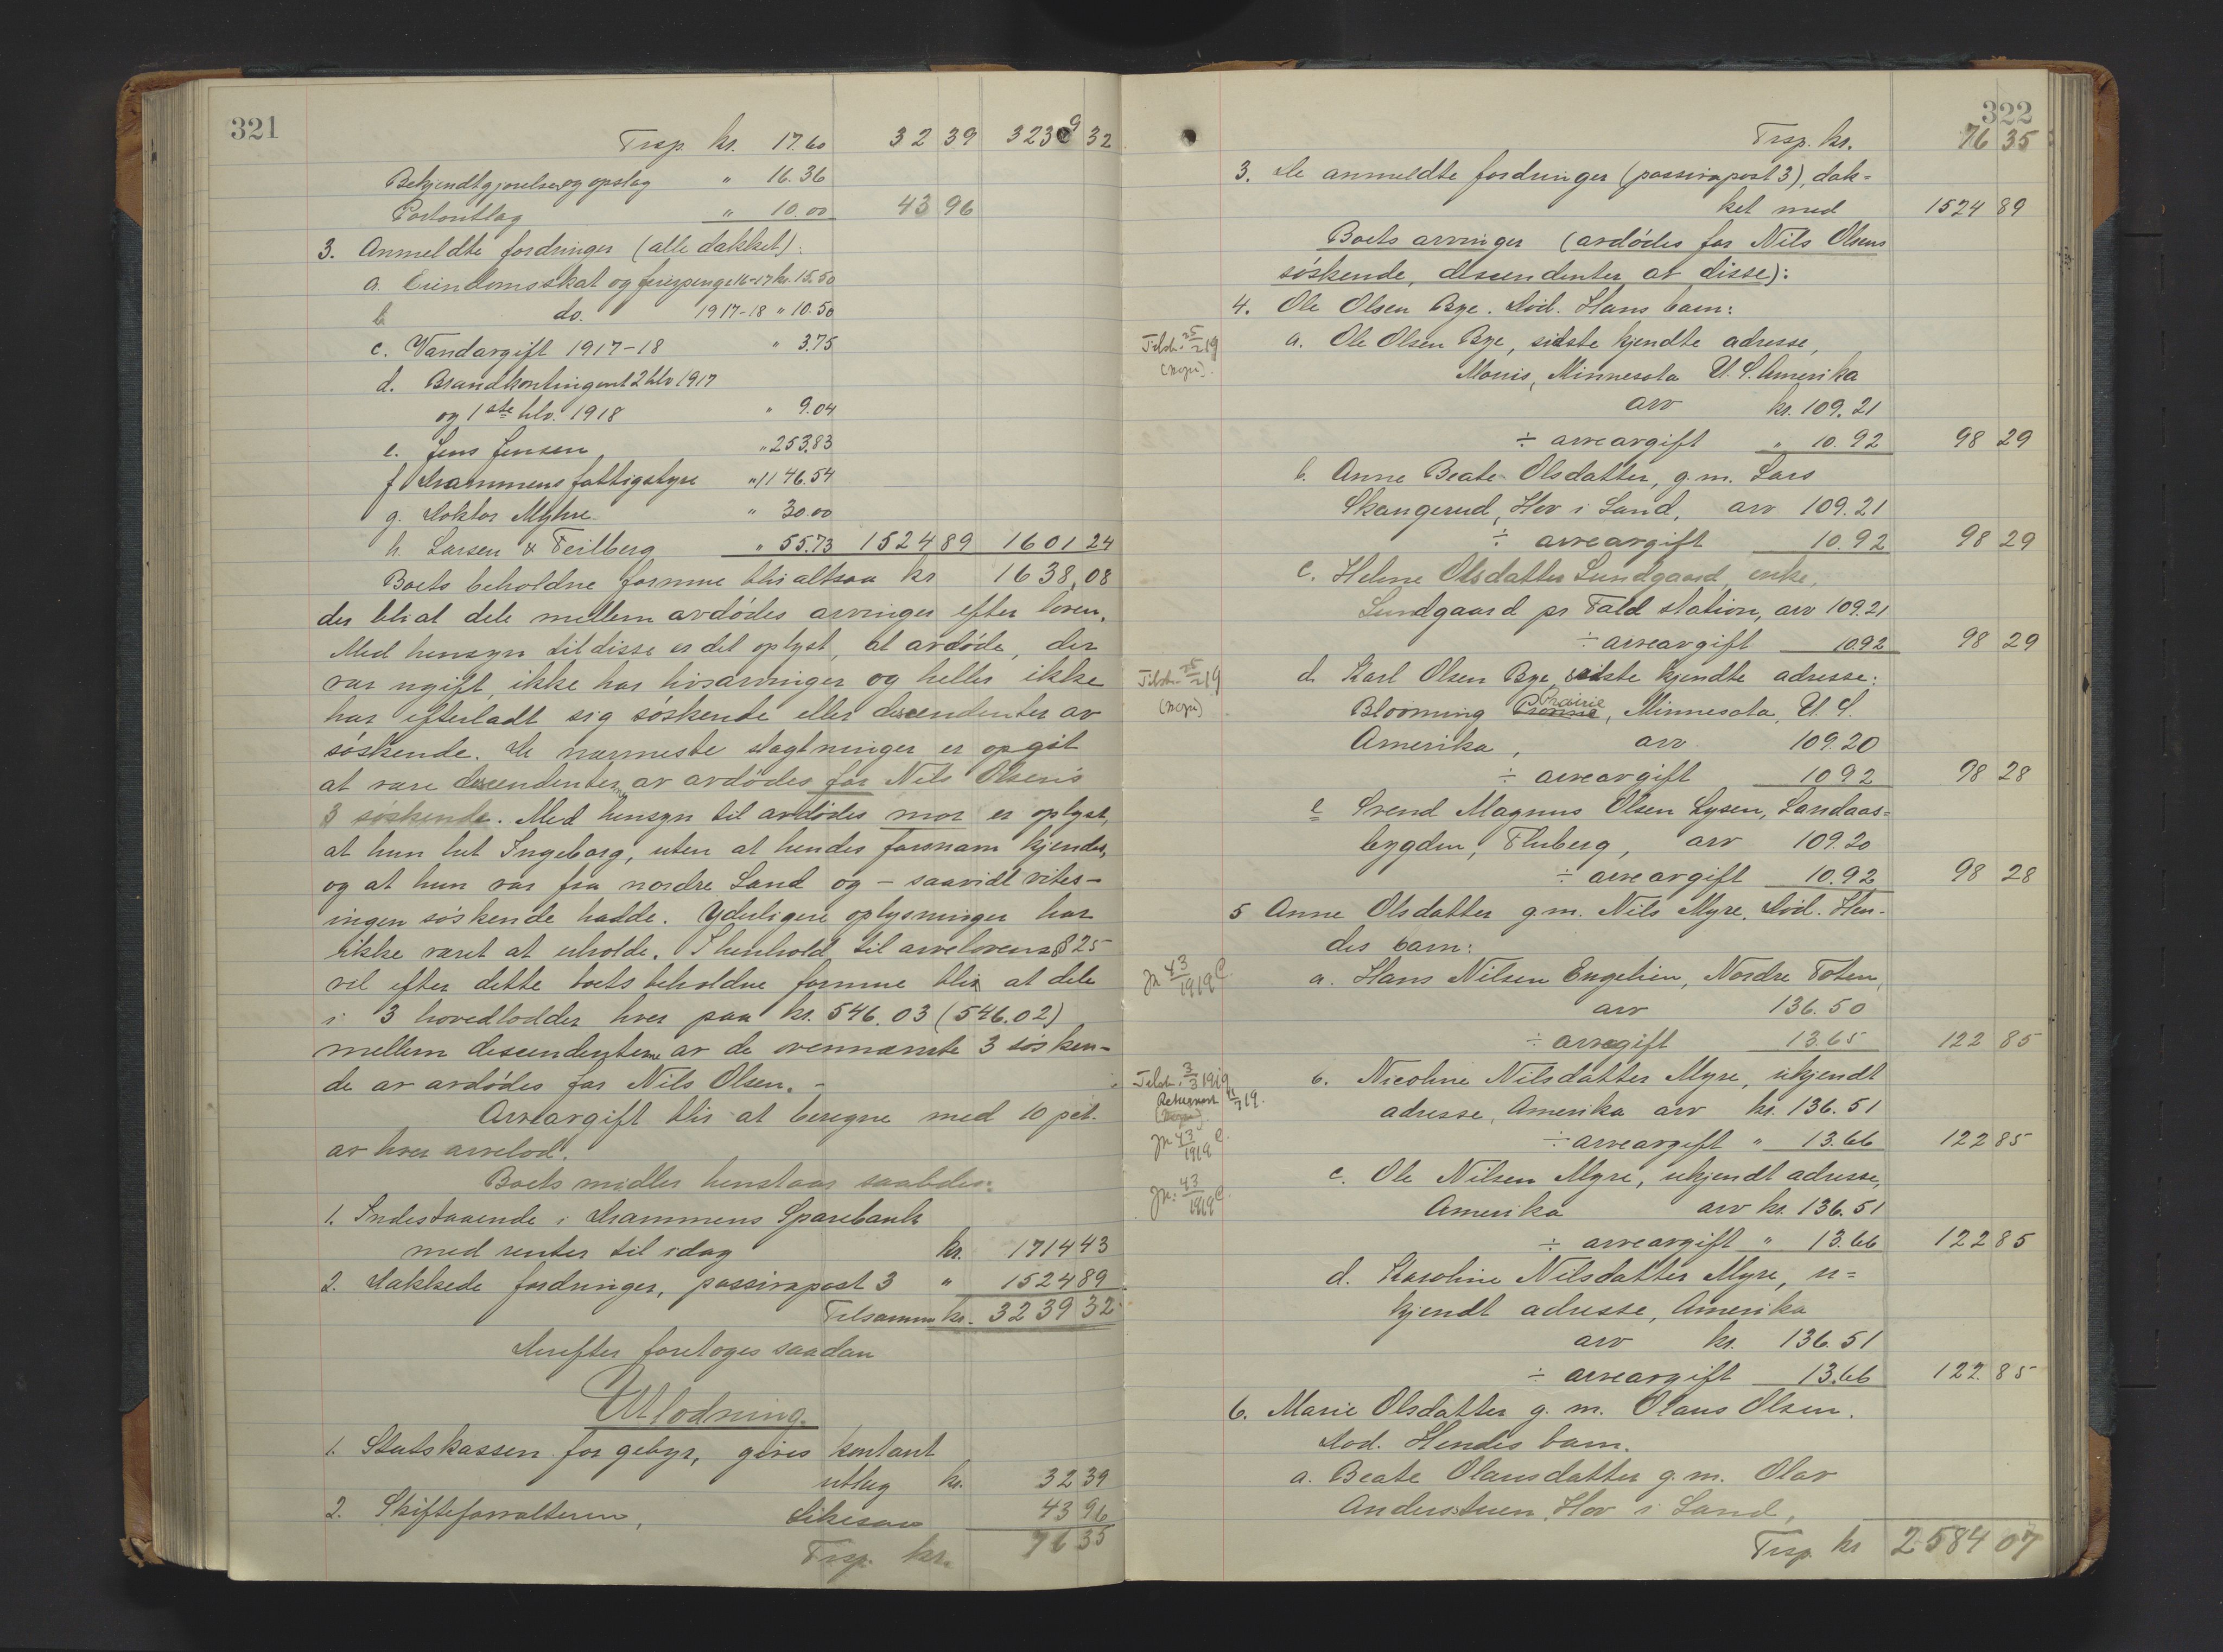 321
Trsp. kr. 17.60 32 39 3239 32
Bekjendtgjørelser og opslag " 16.36
Portoutlag " 10.00 43 96
3. Anmeldte fordringer (alle dækket):
a. Eiendomsskat og feiepenge 16-17 kr. 15.50
b do. 1917-18 " 10.50
c. Vandavgift 1917-18 " 3.75
d. Brandkontingent 2 hlv 1917
og 1ste hlv. 1918 " 9.04
e. Jens Jensen " 253.83
f Drammens fattigstyre " 1146.54
g. Doktor Myhre " 30.00
h. Larsen & Feilberg " 55.73 1524 89 1601 24
Boets beholdne formue blir altsaa kr 1638,08
der blir at dele mellem avdødes arvinger efter loven.
Med hensyn til disse er det oplyst, at avdøde, der
var ugift, ikke har livsarvinger og heller ikke
har efterladt sig søskende eller descendenter av
søskende. De nærmeste slagtninger er opgit
at være descendenterne av avdødes far Nils Olsen's
3 søskende. Med hensyn til avdødes mor er oplyst,
at hun het Ingeborg, uten at hendes farsnavn kjendes,
og at hun var fra nordre Land og – saavidt vites –
ingen søskende hadde. Yderligere oplysninger har
ikke været at erholde. I henhold til arvelovens § 25
vil efter dette boets beholdne formue blir at dele
i 3 hovedlodder hver paa kr. 546.03 (546.02)
mellem descendenterne av de ovennævnte 3 søsken-
de av avdødes far Nils Olsen. –
Arveavgift blir at beregne med 10 pct.
av hver arvelod.
Boets midler henstaar saaledes:
1. Indestaaende i Drammens Sparebank
med renter til idag kr. 1714 43
2. Dækkede fordringer, passivapost 3 " 1524 89
Tilsammen kr. 3239 32
Derefter foretoges saadan
Utlodning.
1. Statskassen for gebyr, gives kontant
utlæg kr. 32 39
2. Skifteforvalteren, Likesaa 43 96
Trsp. kr. 76 35
322
Trsp. kr. 76 35
3. De anmeldte fordringer (passivapost 3), dæk=
ket med 1524 89
Boets arvinger (avdødes far Nils Olsens
søskende, descendenter av disse):
4. Ole Olsen Bye. Død. Hans barn:
Tilstr. 25/2 19
a. Ole Olsen Bye, sidste kjendte adresse,
Morris, Minnesota U. S. Amerika
arv kr. 109.21
÷ arveavgift " 10.92 98 29
b. Anne Beate Olsdatter, g.m. Lars
Skangerud, Hov i Land, arv 109.21
÷ arveavgift 10.92 98 29
c. Helene Olsdatter Lundgaard, enke,
Lundgaard pr Fald station, arv 109.21
÷ arveavgift 10.92 98 29
Tilstr. 25/2 19
d. Karl Olsen Bye, sidste kjendte adresse:
Blooming Prairie, Minnesota, U. S.
Amerika, arv 109.20
÷ arveavgift 10 92 98 28
e Svend Magnus Olsen Lysen, Landaas=
bygden, Fluberg, arv 109.20
÷ arveavgift 10.92 98 28
5 Anne Olsdatter g.m. Nils Myre. Død. Hen-
des barn:
Jr 43/1919 C.
a. Hans Nilsen Engelien, Nordre Toten,
arv 136.50
÷ arvegift 13.65 122 85
Tilstr. 3/3 1919
Returnert
Jr 43/1919 C.
b. Nicoline Nilsdatter Myre, ukjendt
adresse, Amerika arv kr. 136.51
÷ arveavgift " 13.66 122 85
Jr: 43/1919 C.
c. Ole Nilsen Myre, ukjendt adresse,
Amerika arv kr. 136.51
÷ arveavgift " 13.66 122 85
d. Karoline Nilsdatter Myre, u=
kjendt adresse, Amerika
arv kr. 136.51
÷ arveavgift 13.66 122 85
6. Marie Olsdatter g. m. Olaus Olsen.
Død. Hendes barn.
a. Beate Olausdatter g.m. Olav
Anderstuen, Hov i Land,
Trsp. kr 2584 07